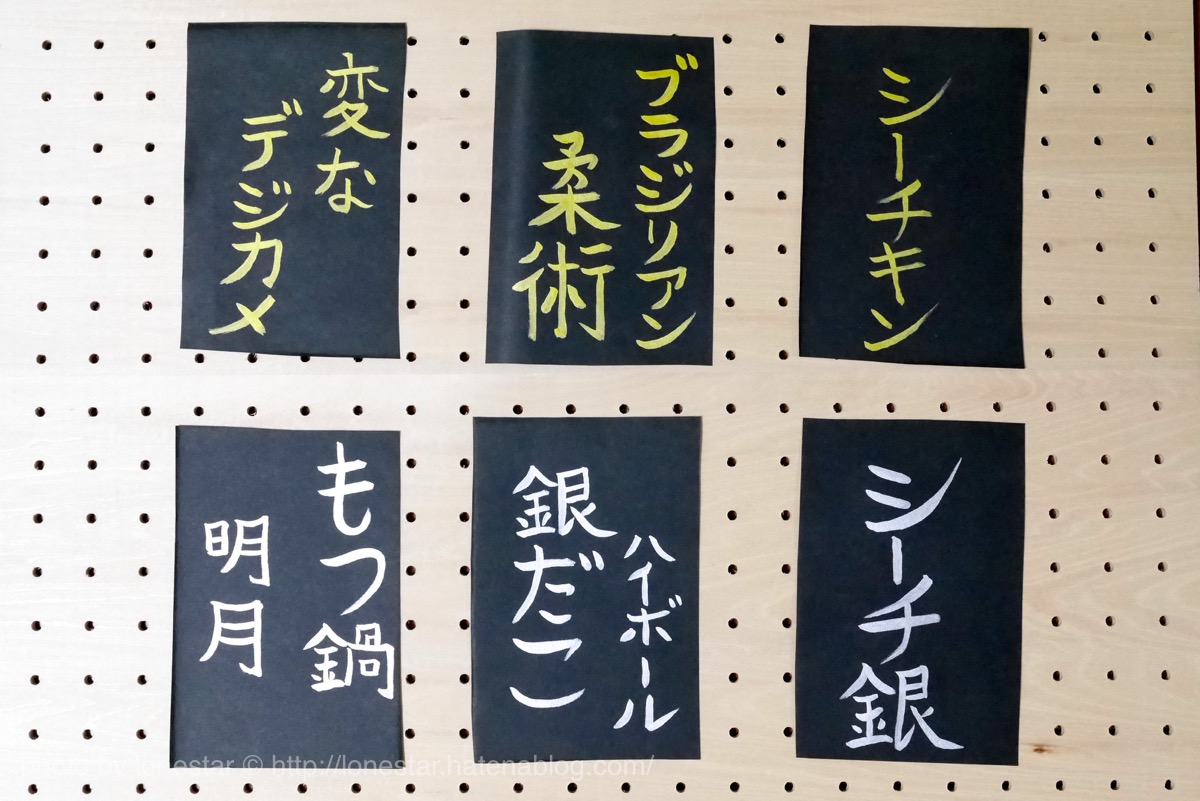 シーチキン
ブラジリアン
柔術
変な
デジカメ
シーチ銀
ハイボール
銀だこ
もつ鍋
明月
Photo by lonestar © http://lonestar.hatenablog.com/